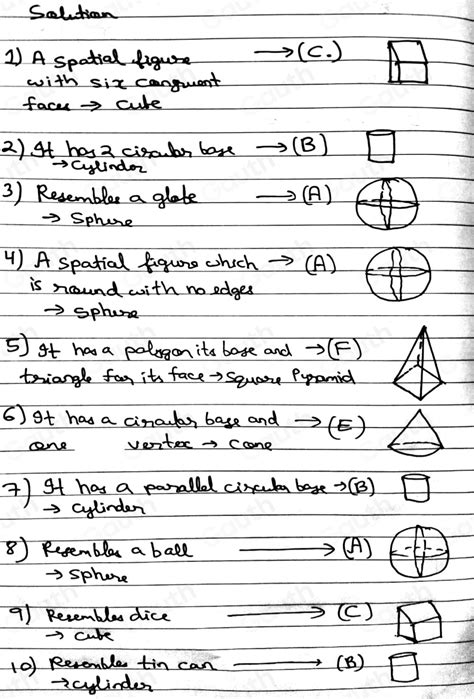 Solution
1) A spatial figure → (C.)
with six congruent
faces → cube
2) It has 2 circular base → (B)
→ Cylinder
3) Resembles a globe → (A)
→ Sphere
4) A spatial figure which → (A)
is round with no edges
→ sphere
5) It has a polygon its base and → (F)
triangle for its face → Square Pyramid
6) It has a circular base and → (E)
one vertex → cone
7) It has a parallel circular base → (B)
→ cylinder
8) Resembles a ball → (A)
→ sphere
9) Resembles dice → (C)
→ cube
10) Resembles tin can → (B)
→ cylinder